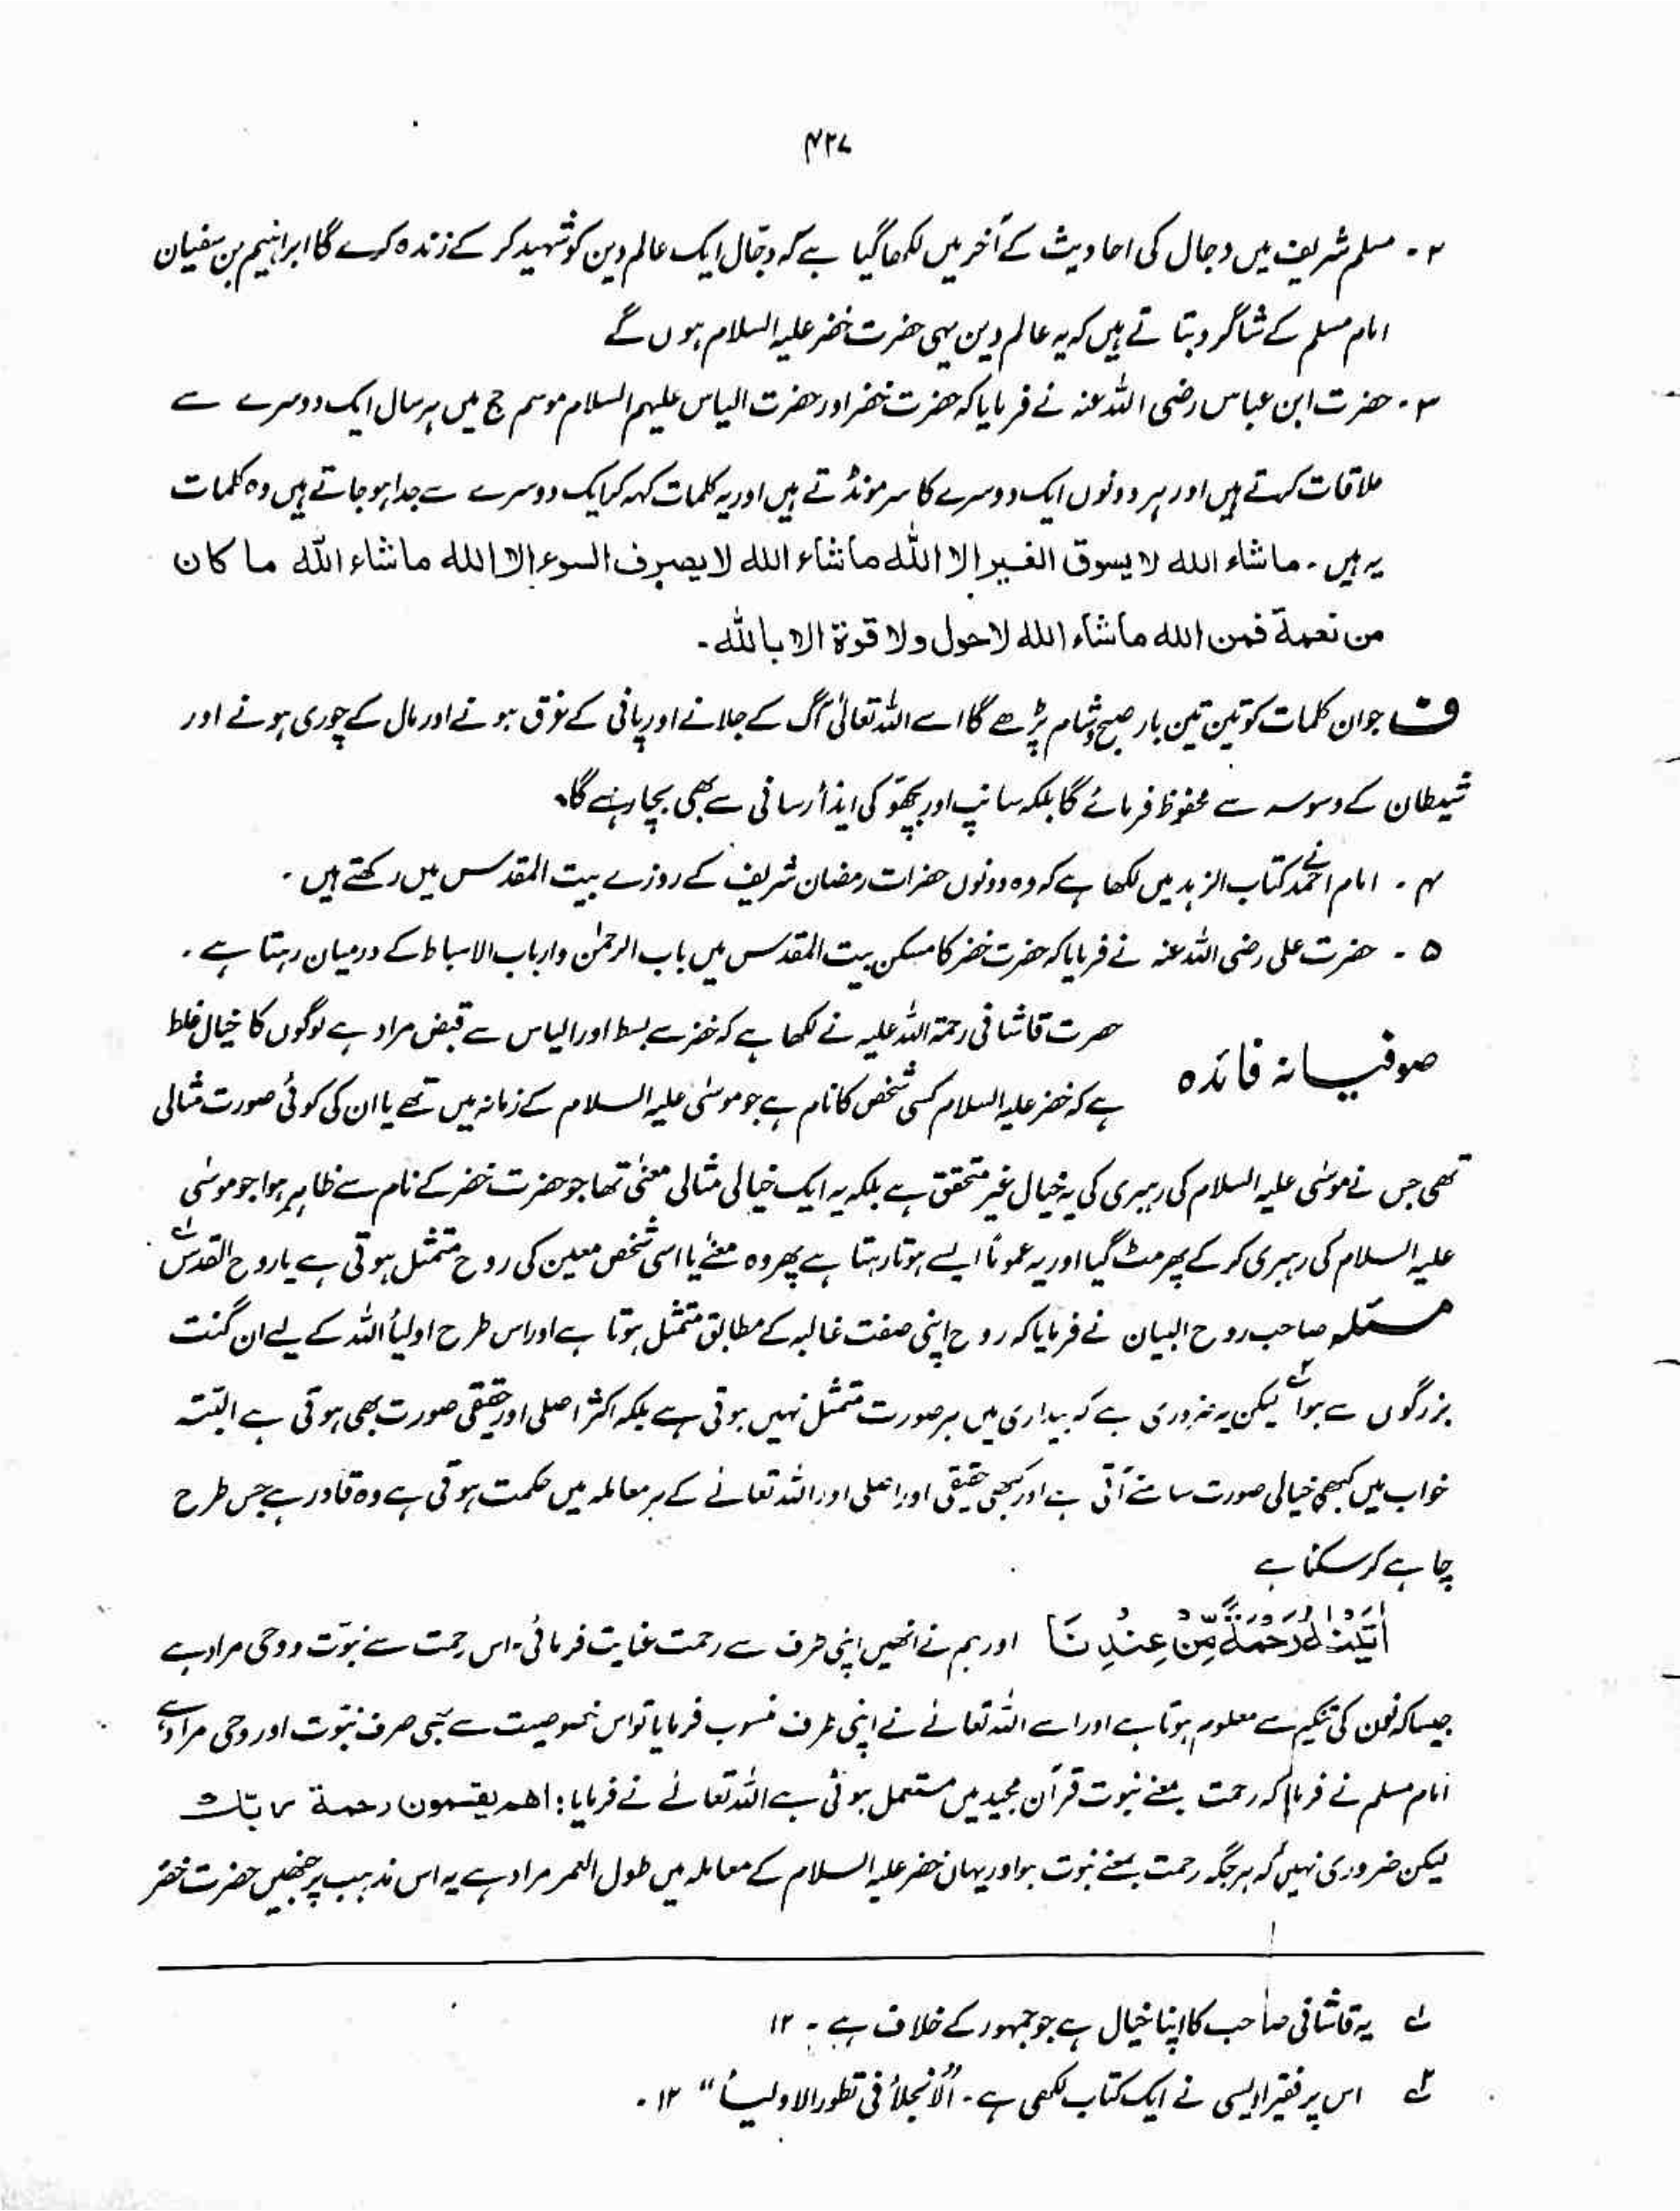 ۴۲۷
۲ - مسلم شریف میں دجال کی احادیث کے آخر میں لکھا گیا ہے کہ دجّال ایک عالم دین کو شہید کر کے زندہ کرے گا ابراہیم بن سفیان
امام مسلم کے شاگرد بتاتے ہیں کہ یہ عالم دین یہی حضرت خضر علیہ السلام ہوں گے
۳ - حضرت ابن عباس رضی اللہ عنہ نے فرمایا کہ حضرت خضر اور حضرت الیاس علیہم السلام موسم حج میں ہر سال ایک دوسرے سے
ملاقات کرتے ہیں اور ہر دونوں ایک دوسرے کا سر مونڈتے ہیں اور یہ کلمات کہہ کر ایک دوسرے سے جدا ہو جاتے ہیں وہ کلمات
یہ ہیں - ماشاء الله لا يسوق الخير الا الله ماشاء الله لا يصرف السوء الا الله ماشاء الله ما كان
من نعمة فمن الله ماشاء الله لاحول ولا قوة الا بالله -
ف جو ان کلمات کو تین تین بار صبح و شام پڑھے گا اسے اللہ تعالیٰ آگ کے جلانے اور پانی کے غرق ہونے اور مال کے چوری ہونے اور
شیطان کے وسوسہ سے محفوظ فرمائے گا بلکہ سانپ اور بچھو کی ایذأ رسانی سے بھی بچا رہے گا۔
۴ - امام احمد نے کتاب الزہد میں لکھا ہے کہ وہ دونوں حضرات رمضان شریف کے روزے بیت المقدس میں رکھتے ہیں -
۵ - حضرت علی رضی اللہ عنہ نے فرمایا کہ حضرت خضر کا مسکن بیت المقدس میں باب الرحمٰن وارباب الاسباط کے درمیان رہتا ہے -
صوفیانہ فائدہ
حصرت قاشانی رحمۃ اللہ علیہ نے لکھا ہے کہ خضر سے بسط اور الیاس سے قبض مراد ہے لوگوں کا خیال غلط
ہے کہ خضر علیہ السلام کسی شخص کا نام ہے جو موسیٰ علیہ السلام کے زمانہ میں تھے یا ان کی کوئی صورت مثالی
تھی جس نے موسیٰ علیہ السلام کی رہبری کی یہ خیال غیر متحقق ہے بلکہ یہ ایک خیالی مثالی معنیٰ تھا جو حضرت خضر کے نام سے ظاہر ہوا جو موسیٰ
علیہ السلام کی رہبری کر کے پھر مٹ گیا اور یہ عموماً ایسے ہوتا رہتا ہے پھر وہ معنے یا اسی شخص معین کی روح متمثل ہوتی ہے یا روح القدس ۱؎
مسئلہ صاحب روح البیان نے فرمایا کہ روح اپنی صفت غالبہ کے مطابق متمثل ہوتا ہے اور اس طرح اولیأ اللہ کے لیے ان گنت
بزرگوں سے ہوا ۲؎ لیکن یہ ضروری ہے کہ بیداری میں ہر صورت متمثل نہیں ہوتی ہے بلکہ اکثر اصلی اور حقیقی صورت بھی ہوتی ہے البتہ
خواب میں کبھی خیالی صورت سامنے آتی ہے اور کبھی حقیقی اور اصلی اور اللہ تعالےٰ کے ہر معاملہ میں حکمت ہوتی ہے وہ قادر ہے جس طرح
چاہے کر سکتا ہے
اٰتَیْنٰہُ رَحْمَةً مِّنْ عِنْدِنَا اور ہم نے انھیں اپنی طرف سے رحمت عنایت فرمائی - اس رحمت سے نبوّت و وحی مراد ہے
جیسا کہ نون کی تکیم سے معلوم ہوتا ہے اور اسے اللہ تعالےٰ نے اپنی طرف منسوب فرمایا تو اس خصوصیت سے بھی صرف نبوّت اور وحی مراد ہے
امام مسلم نے فرمایا کہ رحمت بمعنے نبوت قرآن مجید میں مستعمل ہوئی ہے اللہ تعالےٰ نے فرمایا : اهم يقسمون رحمة ربك
لیکن ضروری نہیں کہ ہر جگہ رحمت بمعنے نبوت ہو اور یہاں خضر علیہ السلام کے معاملہ میں طول العمر مراد ہے یہ اس مذہب پر جنھیں حضرت خضر
۱؎ یہ قاشانی صاحب کا اپنا خیال ہے جو جمہور کے خلاف ہے - ۱۲
۲؎ اس پر فقیر اویسی نے ایک کتاب لکھی ہے - "الانجلأ فی تطور الاولیأ" ۱۲ -